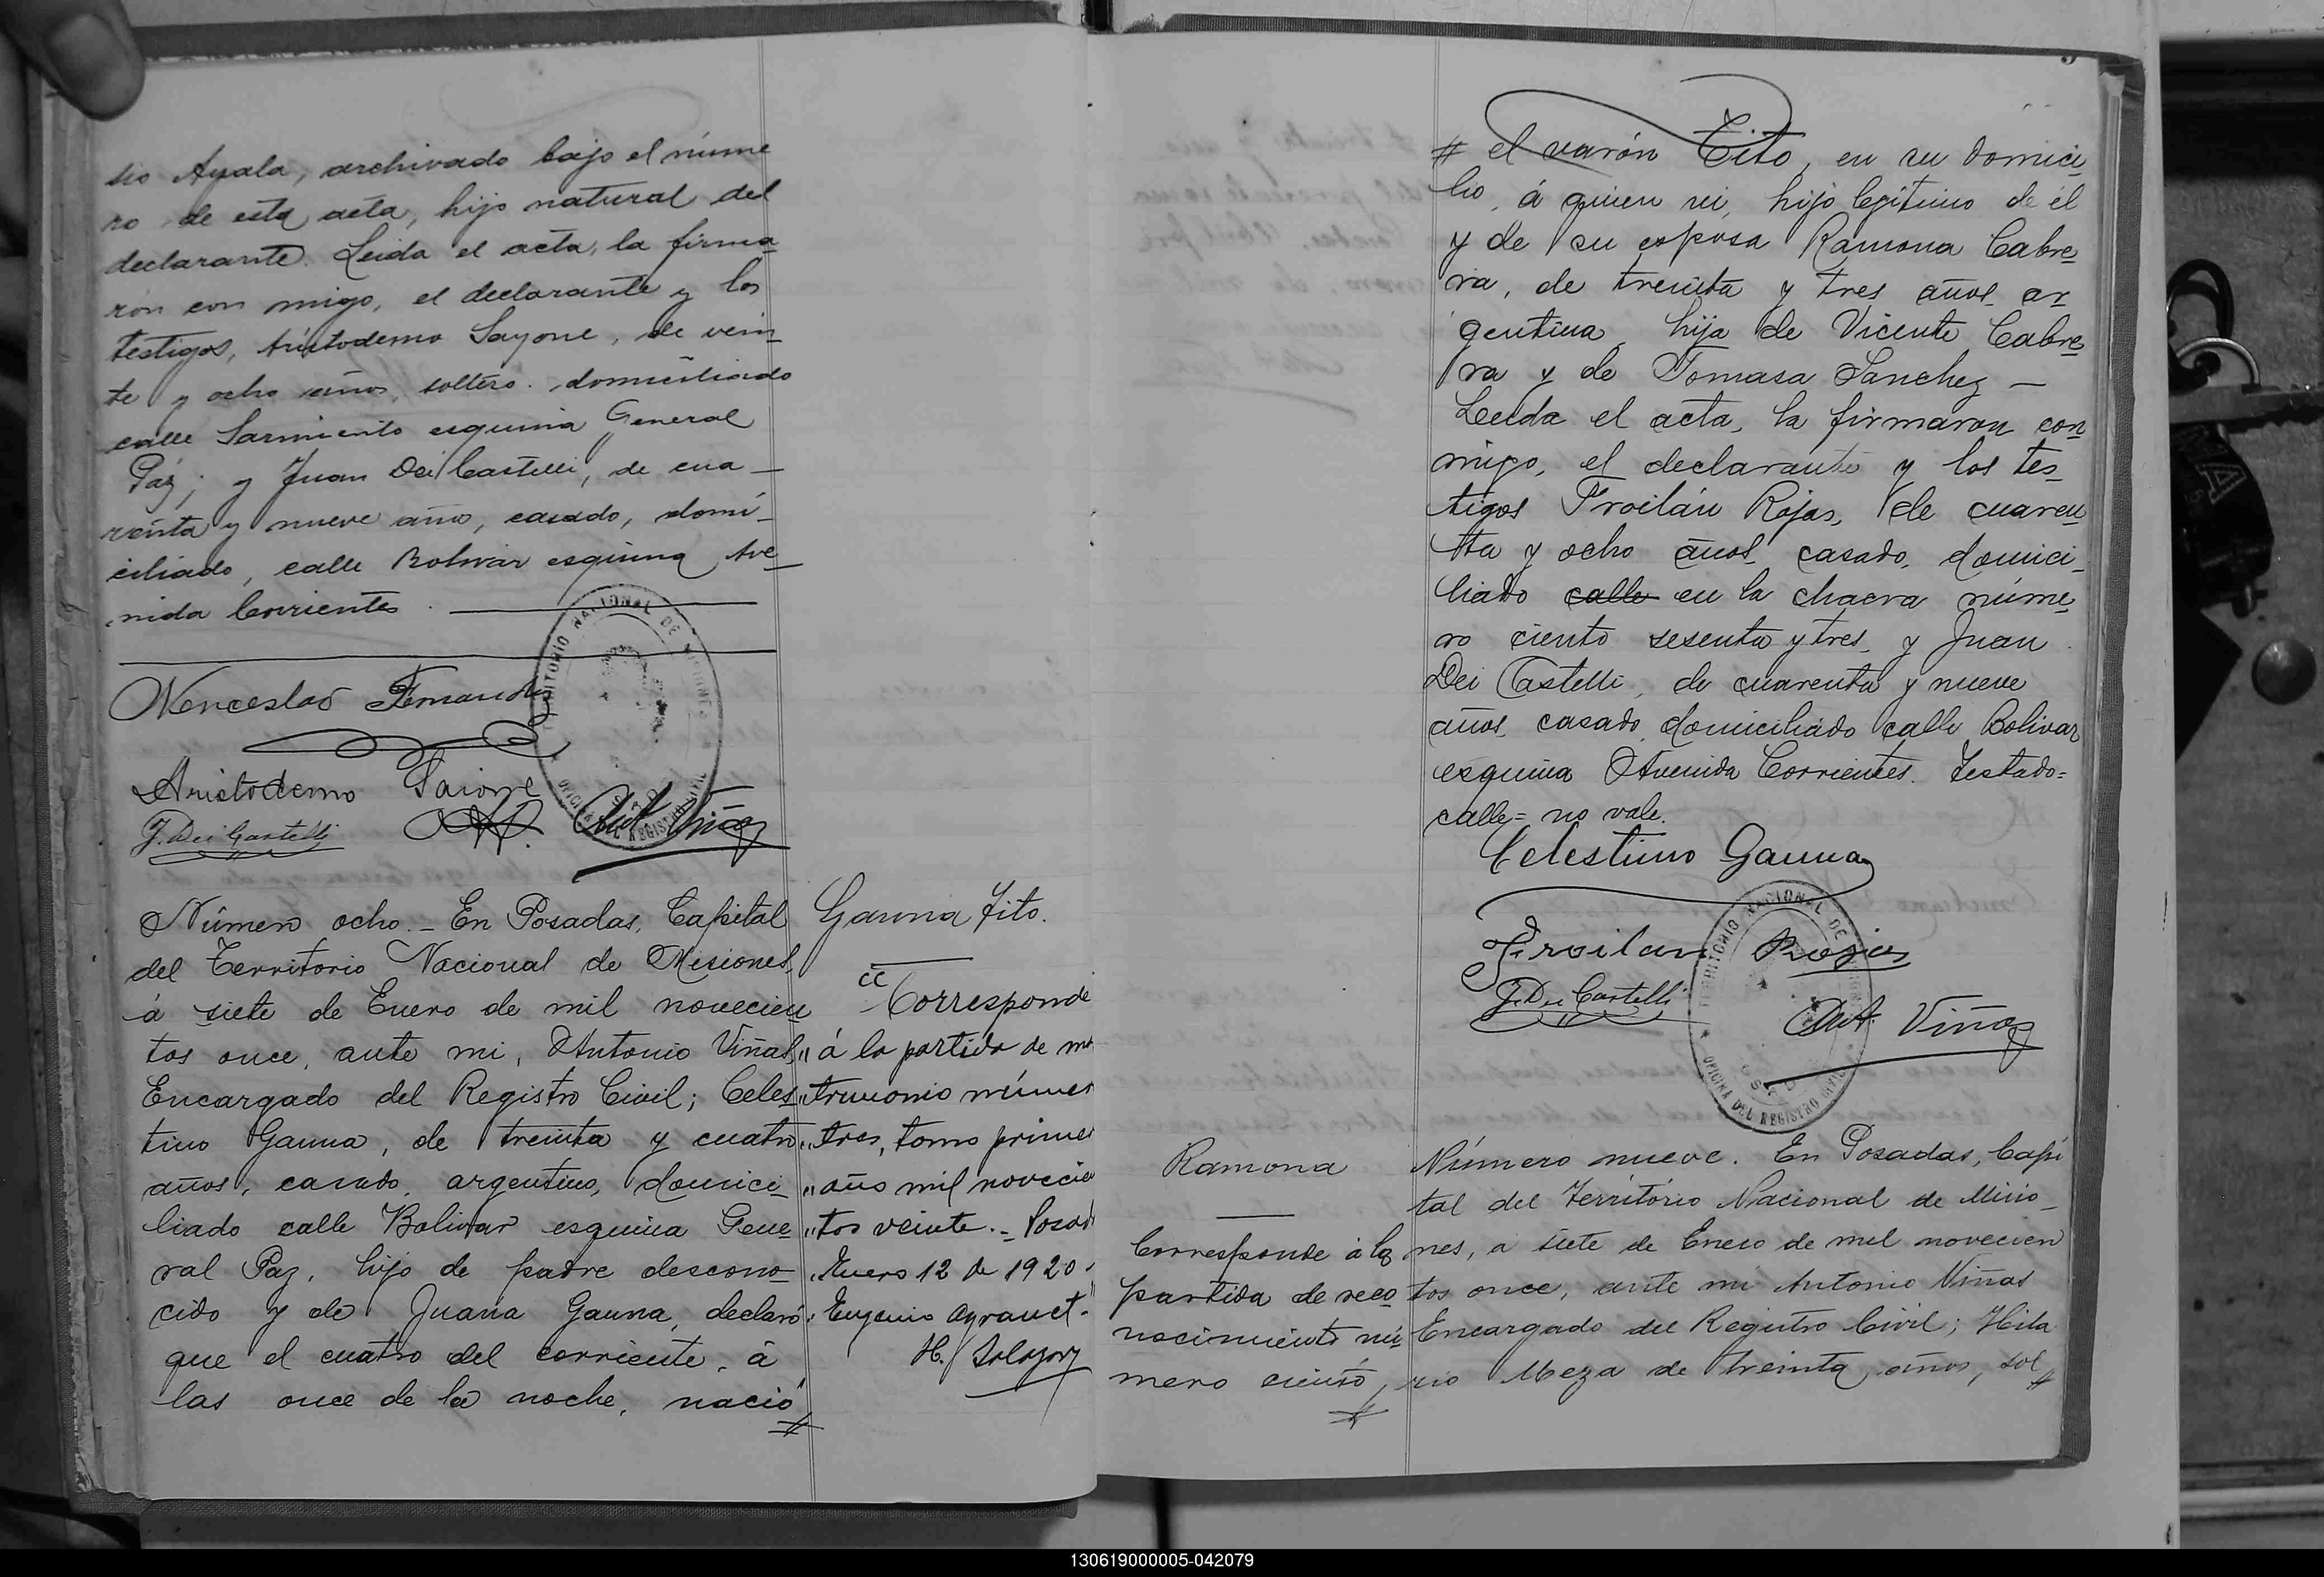 sio Ayala, archivado bajo el núme
ro de esta acta, hijo natural del
declarante. Leida el acta, la firma
ron con migo, el declarante y los
testigos, Aristodemo Sayone, de vein
te y ocho años, soltero. domiciliado
calle Sarmiento esquina General
Paz; y Juan Dei Castelli, de cua
renta y nueve años, casado, domi-
ciliado, calle Bolivar esquina Ave
nida Corrientes.
Wenceslao Fernandez
Aristodemo Saione
J. Dei Castelli Ant. Viñas
TERRITORIO NACIONAL DE MISIONES
OFICINA DEL REGISTRO CIVIL
Número ocho. - En Posadas, Capital
del Territorio Nacional de Misiones,
á siete de Enero de mil novecien
tos once, ante mi, Antonio Viñas,
Encargado del Registro Civil; Celes
tino Gauna, de treinta y cuatro
años, casado, argentino, domici-
liado calle Bolivar esquina Gene
ral Paz, hijo de padre descono
cido y de Juana Gauna, declaró
que el cuatro del corriente, á
las once de la noche, nació
#
Gauna Tito.
"Corresponde
" á la partida de ma
" trimonio númer
" tres, tomo primer
" año mil novecien
" tos veinte. - Posad
" Enero 12 de 1920.
" Eugenio
H.
# el varón Tito, en su domici
lio, á quien vi, hijo legítimo de él
y de su esposa Ramona Cabre
ra, de treinta y tres años, ar
gentina, hija de Vicente Cabre
ra y de Tomasa Sanchez —
Leida el acta, la firmaron con
migo, el declarante y los tes
tigos Froilán Rojas, de cuaren
ta y ocho años, casado, domici-
liado calle en la chacra núme
ro ciento sesenta y tres, y Juan
Dei Castelli, de cuarenta y nueve
años, casado, domiciliado calle Bolivar
esquina Avenida Corrientes. Testado=
calle= no vale.
Celestino Gauna
Froilan Rojas
J. Dei Castelli
Ant. Viñas
TERRITORIO NACIONAL DE
OFICINA DEL REGISTRO CIVIL
Ramona
Corresponde á la
partida de reco
nocimiento nú
mero ciento,
#
Número nueve. En Posadas, Capi
tal del Territorio Nacional de Misio
nes, a siete de Enero de mil novecien
tos once, ante mi Antonio Viñas
Encargado del Registro Civil; Hila
rio Meza de treinta años, sol
#
130619000005-042079